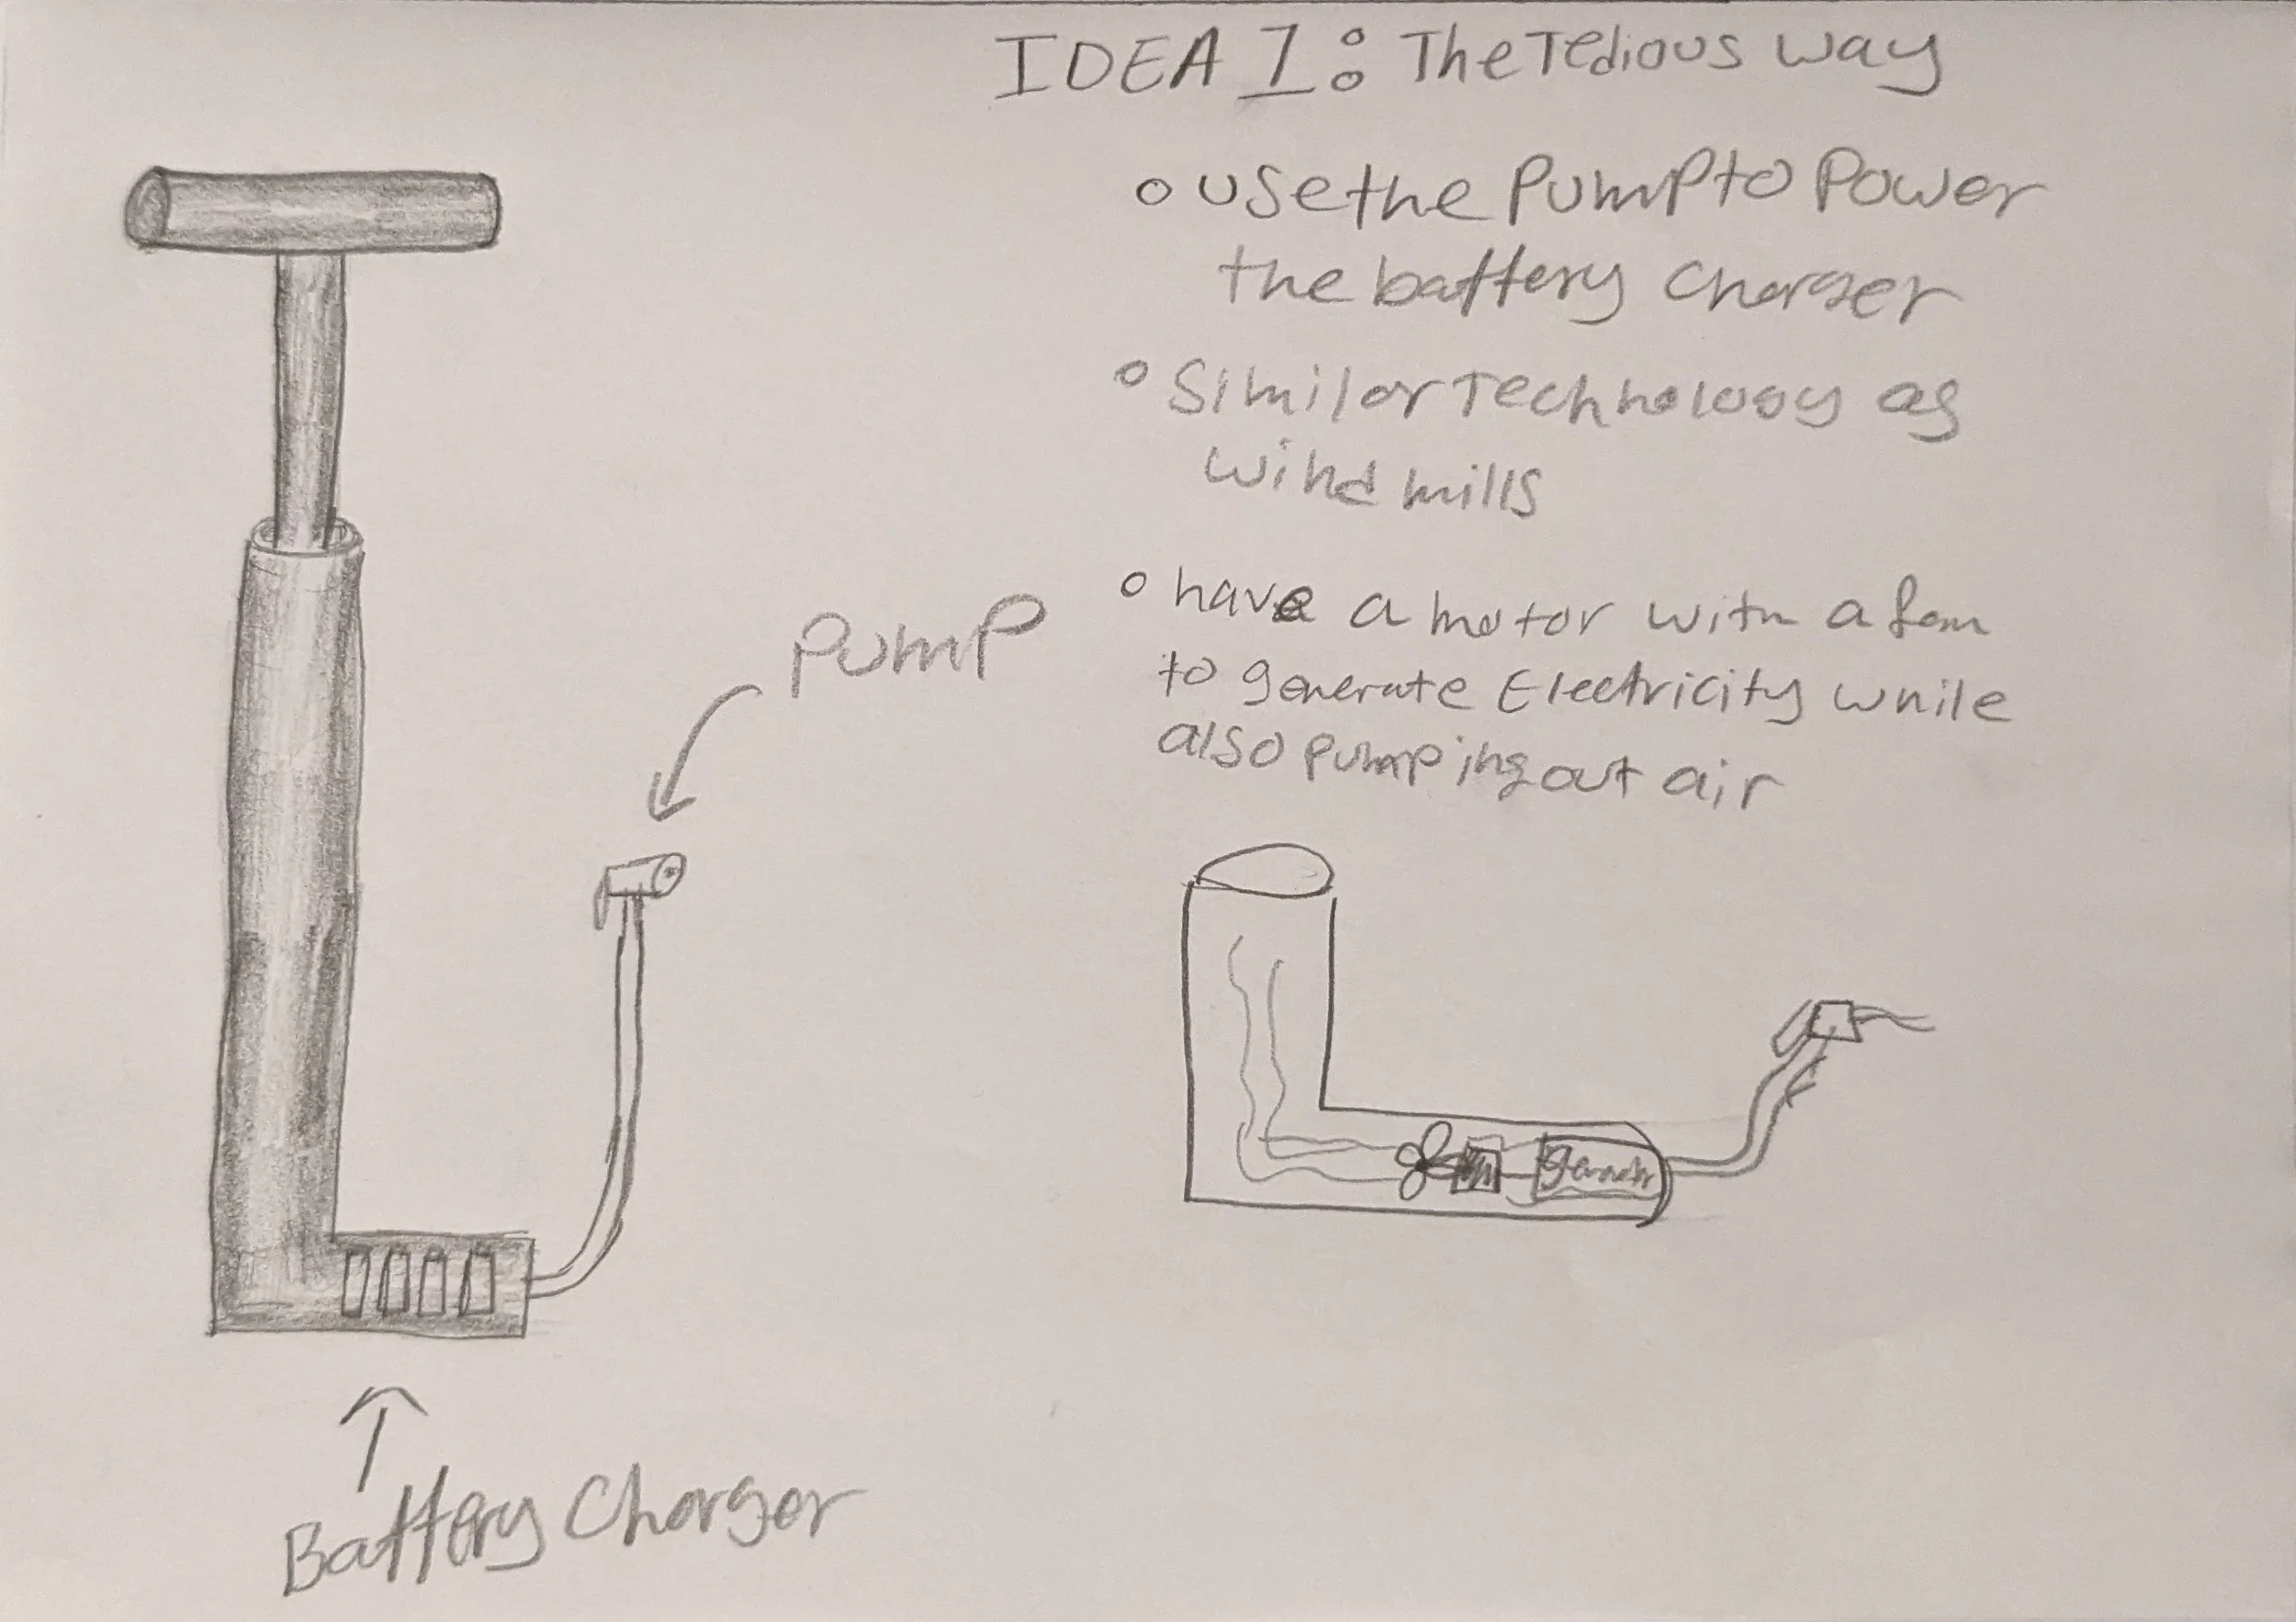 IDEA 1: The Tedious way
o use the pump to power
the battery charger
o Similar Technology as
wind mills
o have a motor with a fan
to generate Electricity while
also pumping out air
Pump
Battery Charger